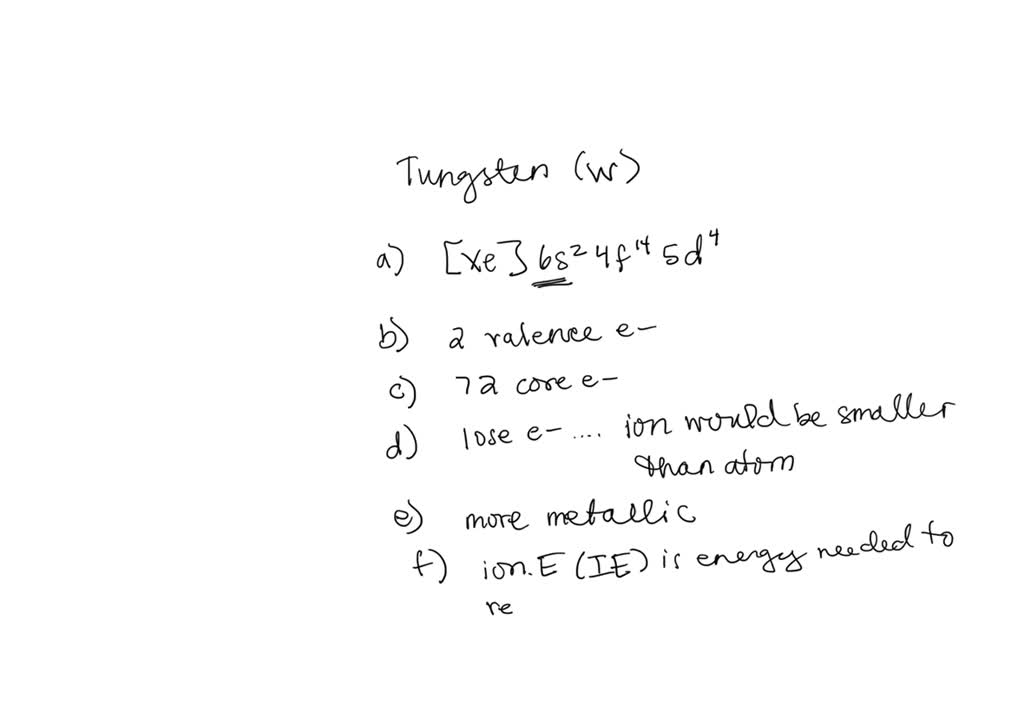 Tungsten (W)
a) [Xe] 6s² 4f¹⁴ 5d⁴
b) 2 valence e-
c) 72 core e-
d) lose e- .... ion would be smaller
than atom
e) more metallic
f) ion. E (IE) is energy needed to
re